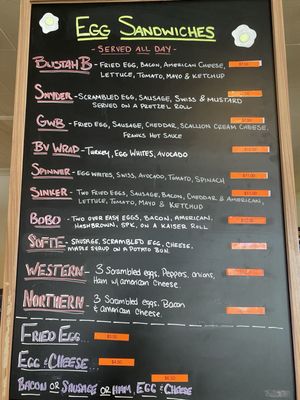 Egg Sandwiches
- Served All Day -
Bustah B - Fried Egg, Bacon, American Cheese,
Lettuce, Tomato, Mayo & Ketchup
Snyder - Scrambled Egg, Sausage, Swiss & Mustard
Served on a Pretzel Roll
GWB - Fried Egg, Sausage, Cheddar, Scallion Cream Cheese,
Franks Hot Sauce
BV Wrap - Turkey, Egg Whites, Avocado
Spinner - Egg Whites, Swiss, Avocado, Tomato, Spinach
Sinker - Two Fried Eggs, Sausage, Bacon, Cheddar & American,
Lettuce, Tomato, Mayo & Ketchup
Bobo - Two Over Easy Eggs, Bacon, American,
Hashbrown, SPK, on a Kaiser Roll
Softie - Sausage, Scrambled Egg, Cheese,
Maple Syrup on a Potato Bun
Western - 3 Scrambled eggs, Peppers, onions,
Ham w/ American Cheese
Northern - 3 Scrambled eggs, Bacon
& American cheese.
Fried Egg...
Egg & Cheese...
Bacon or Sausage or Ham, Egg & Cheese